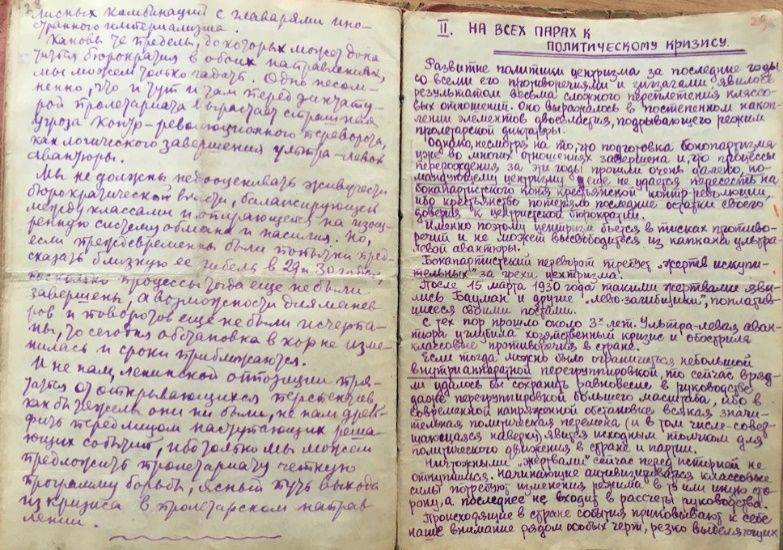 28
лисных комбинаций с главарями ино-
странного империализма.
Каковы те пределы, до которых может дока
титься бюрократия в обоих направлениях,
мы можем только гадать. Одно несом-
ненно, что и тут и там перед диктату
рой пролетариата вырастает страшная
угроза контр-революционного переворота,
как логического завершения ультра-левой
авантюры.
Мы не должны недооценивать живучести
бюрократической власти, балансирующей
между классами и опирающейся на изощ-
ренную систему обмана и насилия. Но,
если преждевременны были попытки пред-
сказать близкую ее гибель в 29 и 30 годах,
процессы тогда еще не были
завершены, а возможности для манев-
ров и поворотов еще не были исчерпа-
ны, то сегодня обстановка в корне изме-
нилась и сроки приближаются.
И не нам, ленинской оппозиции пря-
таться от открывающихся перспектив
как бы тяжелы они ни были, не нам дрей-
фить перед лицом наступающих реша-
ющих событий, ибо только мы можем
предложить пролетариату четкую
программу борьбы, ясный путь выхода
из кризиса в пролетарском направ
лении.
29
II. НА ВСЕХ ПАРАХ К
ПОЛИТИЧЕСКОМУ КРИЗИСУ.
Развитие политики центризма за последние годы
со всеми его противоречиями и зигзагами явилось
результатом весьма сложного переплетения классо-
вых отношений. Оно выражалось в постепенном накоп
лении элементов двоевластия, подрывающего режим
пролетарской диктатуры.
Однако, несмотря на то, что подготовка бонопартизма
уже во многих отношениях завершена и, что процессы
перерождения за эти годы прошли очень далеко, ко-
мандующему центризму еще не удается пересесть на
бонапартистского коня крестьянской контр-революции,
ибо крестьянство потеряло последние остатки своего
доверия к центристской бюрократии.
Именно поэтому центризм бьется в тисках противо-
речий и не может высвободиться из капкана ультра-
левой авантюры.
Бонапартистский переворот требует „жертв искупи-
тельных" за грехи центризма.
После 15 марта 1930 года такими жертвами яви-
лись Бауман и другие „лево-загибщики", поплатив
шиеся своими постами.
С тех пор прошло около 3х лет. Ультра-левая аван
тюра усилила хозяйственный кризис и обострила
классовые противоречия в стране.
Если тогда можно было ограничиться небольшой
внутриаппаратной перегруппировкой, то сейчас вряд-
ли удалось бы сохранить равновесие в руководстве
даже перегруппировкой большего масштаба, ибо в
современной напряженной обстановке всякая значи-
тельная политическая перемена (и в том числе-совер-
шающаяся наверху) явится исходным толчком для
политического движения в стране и партии.
Ничтожными „жертвами" сейчас перед историей не
откупишься. Начинающие активизироваться классовые
силы потребуют изменения режима в ту или иную сто
рону, а последнее не входит в рассчеты руководства.
Происходящие в стране события приковывают к себе
наше внимание рядом особых черт, резко выделяющих